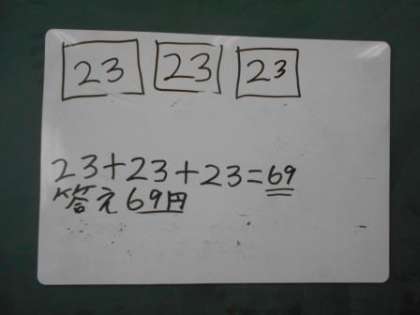 23 23 23
23+23+23=69
答え69円